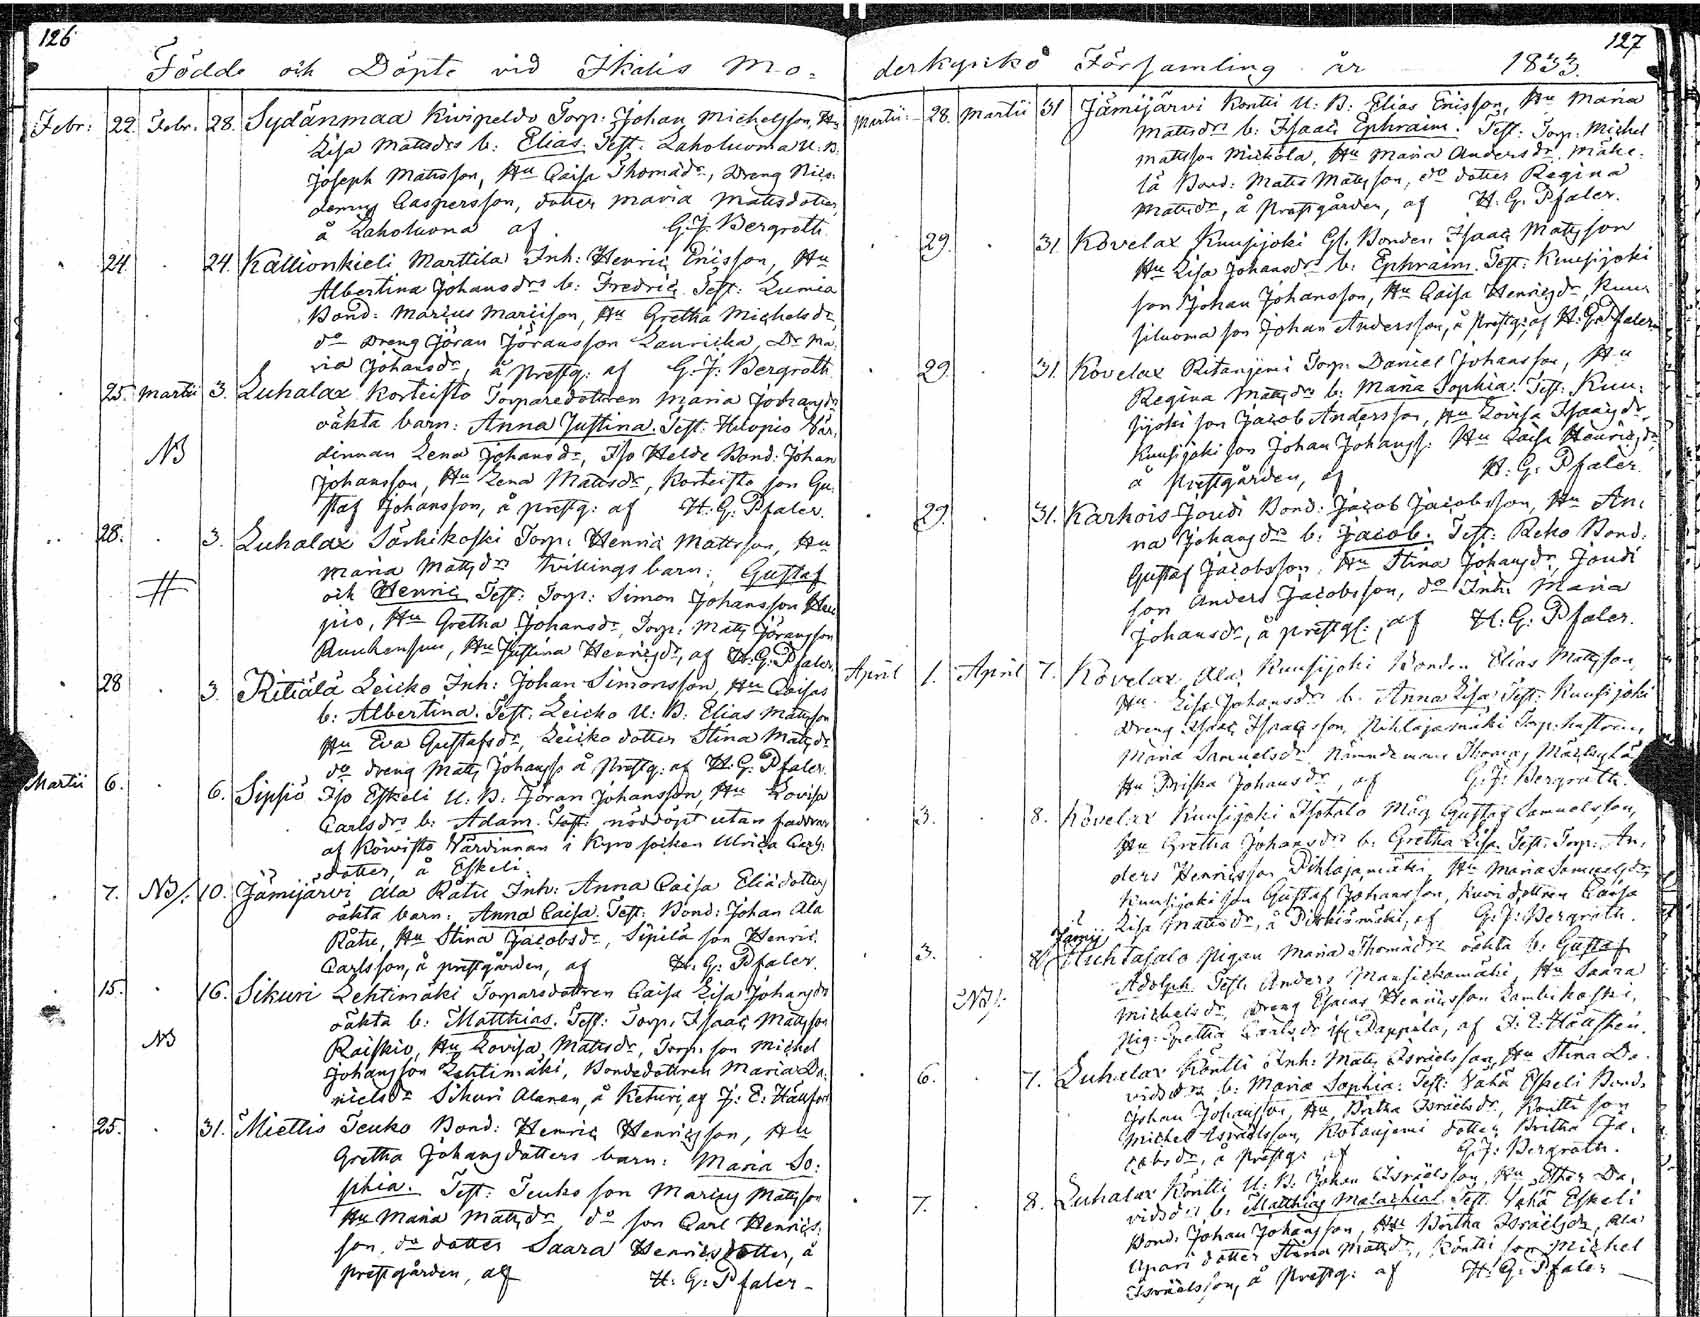 126
Födde och Döpte vid Ikalis Mo=
Febr: 22. Febr. 28. Sydänmaa Kivipeldo Torp: Johan Michelsson, Hu
Lisa Mattsdrs b: Elias. Test: Laholuoma U: B:
Joseph Mattsson, Hu Caisa Thomædr, Dreng
Caspersson, dotter Maria Mattsdotter
å Laholuoma af G. J. Bergroth.
24. 24. Kallionkieli Marttila Inh: Henric Ericsson, Hu
Albertina Johansdrs b: Fredric. Test: Lumia
Bond: Marius Mariison, Hu Gretha Michelsdr,
do Dreng Jöran Jöransson Lauricka, Dr Ma
ria Johansdr, å prestg: af G. J. Bergroth.
25. Martii 3. Luhalax Korteisto Torparedottren Maria Johansdr
oäkta barn: Anna Justina. Test: Vär
NB dinnan Lena Johansdr, Iso Helde Bond: Johan
Johansson, Hu Lena Mattsdr, Korteisto son Gu
staf Johansson, å prestg: af H. G. Pfaler.
28. 3. Luhalax Särkikoski Torp: Henric Mattsson, Hu
Maria Mattsdrs tvillingsbarn: Gustaf
och Henric Test: Torp: Simon Johansson
pio, Hu Gretha Johansdr, Torp: Matts Jöransson
Hu Justina Henricsdr, af H. G. Pfaler.
28 3. Ritiälä Leicko Inh: Johan Simonsson, Hu Caisas
b: Albertina. Test: Leicko U: B: Elias Mattsson
Hu Eva Gustafsdr, Leicko dotter Stina Mattsdr
do dreng Matts Johanss å prestg: af H. G. Pfaler.
Martii 6. 6. Sippio Iso Eskeli U: B: Jöran Johansson, Hu Lovisa
Carlsdrs b: Adam. Test: nöddöpt utan faddrar
af Röwisto Värdinnan i Kyro socken Ulrica Carls
dotter, å Eskeli.
7. NB/: 10. Jämijärvi Ala Rätu Inh: Anna Caisa Eliædotters
oäkta barn: Anna Caisa. Test: Bond: Johan Ala
Rätu, Hu Stina Jacobsdr, Sipilä son Henric
Carlsson, å prestgården, af H. G. Pfaler.
15. 16. Sikuri Lehtimäki Torparsdottren Caisa Lisa Johansdrs
oäkta b: Matthias. Test: Torp: Isaac Mattsson
NB Raiskio, Hu Lovisa Mattsdr, Torp: son Michel
Johansson Lehtimäki, Bondedottren Maria Da
nielsdr Sikuri Alanen, å Keturi, af J: E: Häufsen
25. 31. Miettis Teuko Bond: Henric Henricsson, Hu
Gretha Johansdotters barn: Maria So:
phia. Test: Teuko son Marius Mattsson
Hu Maria Mattsdr do son Carl Henrics
son, do dotter Saara Henricsdotter, å
prestgården, af H: G: Pfaler.
127
derkyrko Församling år 1833.
Martii 28. Martii 31 Jämijärvi Kontti U: B: Elias Ericsson, Hu Maria
Mattsdrs b: Isaac Ephraim. Test: Torp: Michel
Mattsson Mickola, Hu Maria Andersdr, Mäke
lä Bond: Matts Mattsson, do dotter Regina
Mattsdr, å prestgården, af H. G. Pfaler.
29. 31. Kovelax Kuusijoki Gl. Bonden Isaac Mattsson
Hu Lisa Johansdrs b: Ephraim. Test: Kuusijoki
son Johan Johansson, Hu Caisa Henricsdr, Kuu
siluoma son Johan Andersson, å prestg: af H. G. Pfaler.
29. 31. Kovelax Ritanjemi Torp: Daniel Johansson, Hu
Regina Mattsdrs b: Maria Sophia. Test: Kuu
sijoki son Jacob Andersson, Hu Lovisa Isaacsdr,
Kuusijoki son Johan Johanss: Hu Caisa Henricsdr,
å prestgården, af H. G. Pfaler.
29. 31. Karhois Joudi Bond: Jacob Jacobsson, Hu An
na Johansdrs b: Jacob. Test: Reko Bond:
Gustaf Jacobsson, Hu Stina Johansdr, Joudi
son Anders Jacobsson, do Inh: Maria
Johansdr, å prestg:, af H: G: Pfaler.
April 1. April 7. Kovelax Ala Kuusijoki Bonden Elias Mattsson,
Hu Lisa Johansdrs b: Anna Lisa Test: Kuusijoki
Dreng Isaac Isaacsson, Pihlajamäki Torp:
Maria Samuelsdr Nämndeman Thomas
Hu Priska Johansdr, af G: J: Bergroth.
3. 8. Kovelax Kuusijoki Isotalo Måg Gustaf Samuelsson,
Hu Gretha Johansdrs b: Gretha Lisa. Test: Torp: An
ders Henricsson Pihlajamäki, Hu Maria Samuelsdr,
Kuusijoki son Gustaf Johansson, dottren Caisa
Lisa Mattsdr, å af G: J: Bergroth.
Jämij
3. 8. Huhtasalo pigan Maria Thomædrs oäkta b: Gustaf
Adolph Test: Anders Mansickamäki, Hu Saara
NB/: Michelsdr, Dreng Esaias Henricsson Lambikoski,
pig: Gretha Carlsdr Pappila, af J. E. Häufsen.
6. 7. Luhalax Kontti Inh: Matts Israelsson, Hu Stina Da
vidsdrs b: Maria Sophia: Test: Vähä Eskeli Bond:
Johan Johansson, Hu Britha Israelsdr, Kontti son
Michel Israelsson, Rotanjemi dotter Britha Ja
cobsdr, å prestg: af G: J: Bergroth.
7. 8. Luhalax Kontti U: B: Johan Israelsson, Hu Ester Da
vidsdrs b: Matthias Malachias. Test: Vähä Eskeli
Bond: Johan Johansson, Hu Britha Israelsdr, Ala
Apari dotter Stina Mattsdr, Kontti son Michel
Israelsson, å prestg: af H. G. Pfaler